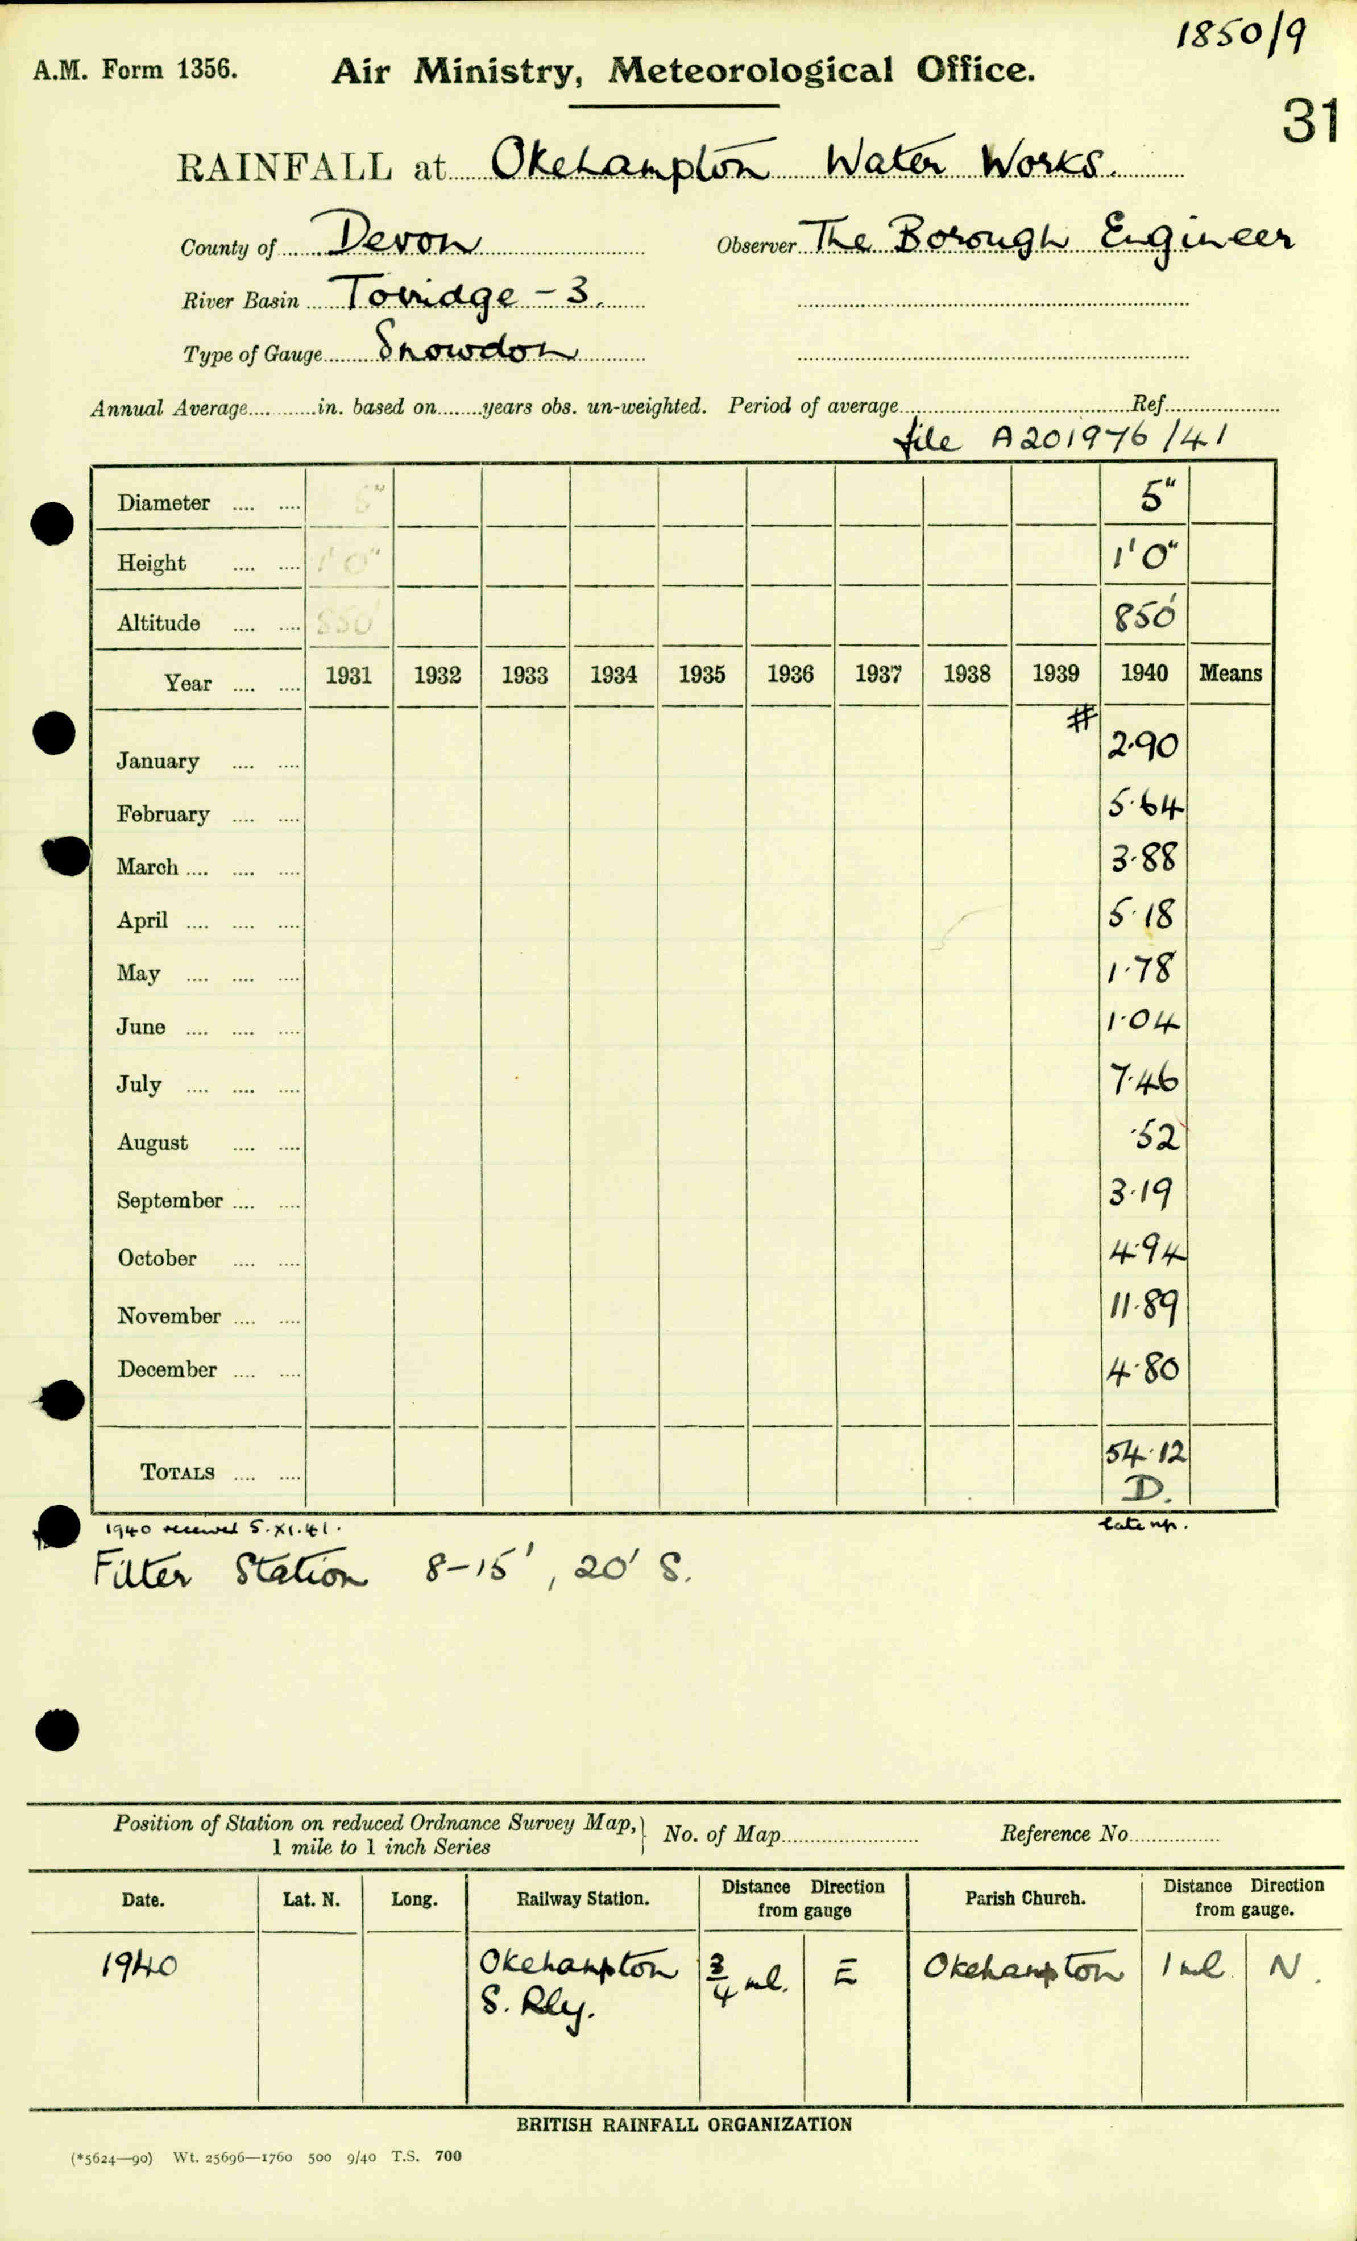 1850/9
A.M. Form 1356. Air Ministry, Meteorological Office.
31
RAINFALL at Okehampton Water Works.
County of Devon Observer The Borough Engineer
River Basin Torridge - 3.
Type of Gauge Snowdon
Annual Average in. based on years obs. un-weighted. Period of average Ref.
file A201976/41
Diameter 5" 5"
Height 1'0" 1'0"
Altitude 850' 850'
Year 1931 1932 1933 1934 1935 1936 1937 1938 1939 1940 Means
#
January 2.90
February 5.64
March 3.88
April 5.18
May 1.78
June 1.04
July 7.46
August .52
September 3.19
October 4.94
November 11.89
December 4.80
TOTALS 54.12
D.
1940 received 5.XI.41. late
Filter Station 8-15', 20' S.
Position of Station on reduced Ordnance Survey Map, No. of Map Reference No.
1 mile to 1 inch Series
Date. Lat. N. Long. Railway Station. Distance Direction from gauge Parish Church. Distance Direction from gauge.
1940 Okehampton S. Rly. 3/4 ml. E Okehampton 1 ml. N.
BRITISH RAINFALL ORGANIZATION
(*5624—90) Wt. 25696—1760 500 9/40 T.S. 700